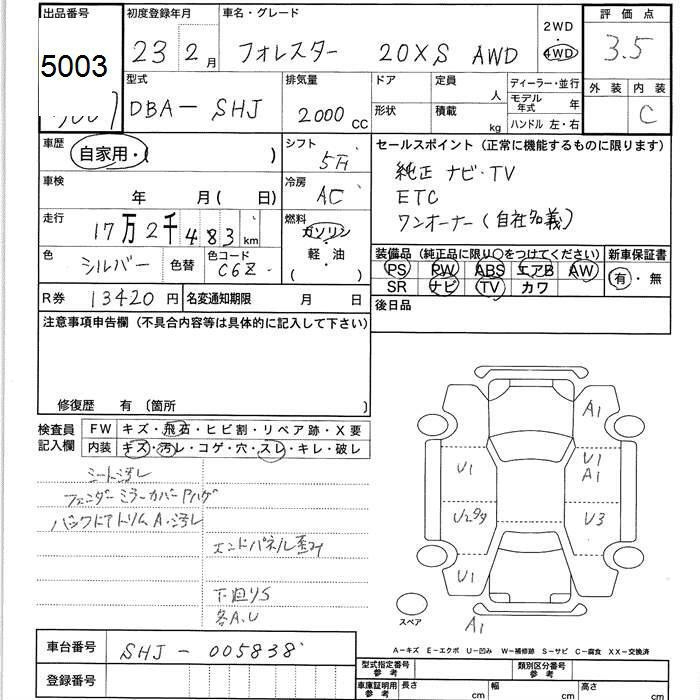 出品番号 初度登録年月 車名・グレード 2WD 評価点
5003 23 2月 フォレスター 20XS AWD 4WD 3.5
型式 排気量 ドア 定員 ディーラー・並行 外装 内装
DBA-SHJ 2000 CC 形状 積載 人 kg モデル年式 年 C
ハンドル 左・右
車歴 自家用・( ) シフト 5FI セールスポイント(正常に機能するものに限ります)
車検 年 月( 日) 冷房 AC 純正 ナビ・TV
ETC
走行 17万2千483km 燃料 ガソリン・軽・油・( ) ワンオーナー(自社名義)
色 シルバー 色替 色コード C6Z 装備品(純正品に限り○をつけてください) 新車保証書
PS PW ABS エアB AW 有・無
SR ナビ TV カワ
R券 13420円 名変通知期限 月 日 後日品
注意事項申告欄(不具合内容等は具体的に記入して下さい)
修復歴 有 (箇所 )
検査員記入欄 FW キズ・飛石・ヒビ割・リペア跡・X要
内装 キズ・汚レ・コゲ・穴・スレ・キレ・破レ
シート汚レ
フェンダーミラーカバー
バックドアトリムA・汚レ
エンドパネル歪み
下廻りS
各A.U
A1
U1 U1
A1
U2 U3
U1
スペア A1
A-キズ E-エクボ U-凹み W-補修跡 S-サビ C-腐食 XX-交換済
車台番号 SHJ-005838
登録番号
型式指定番号 参考 類別区分番号 参考
車庫証明用 参考 長さ cm 幅 cm 高さ cm